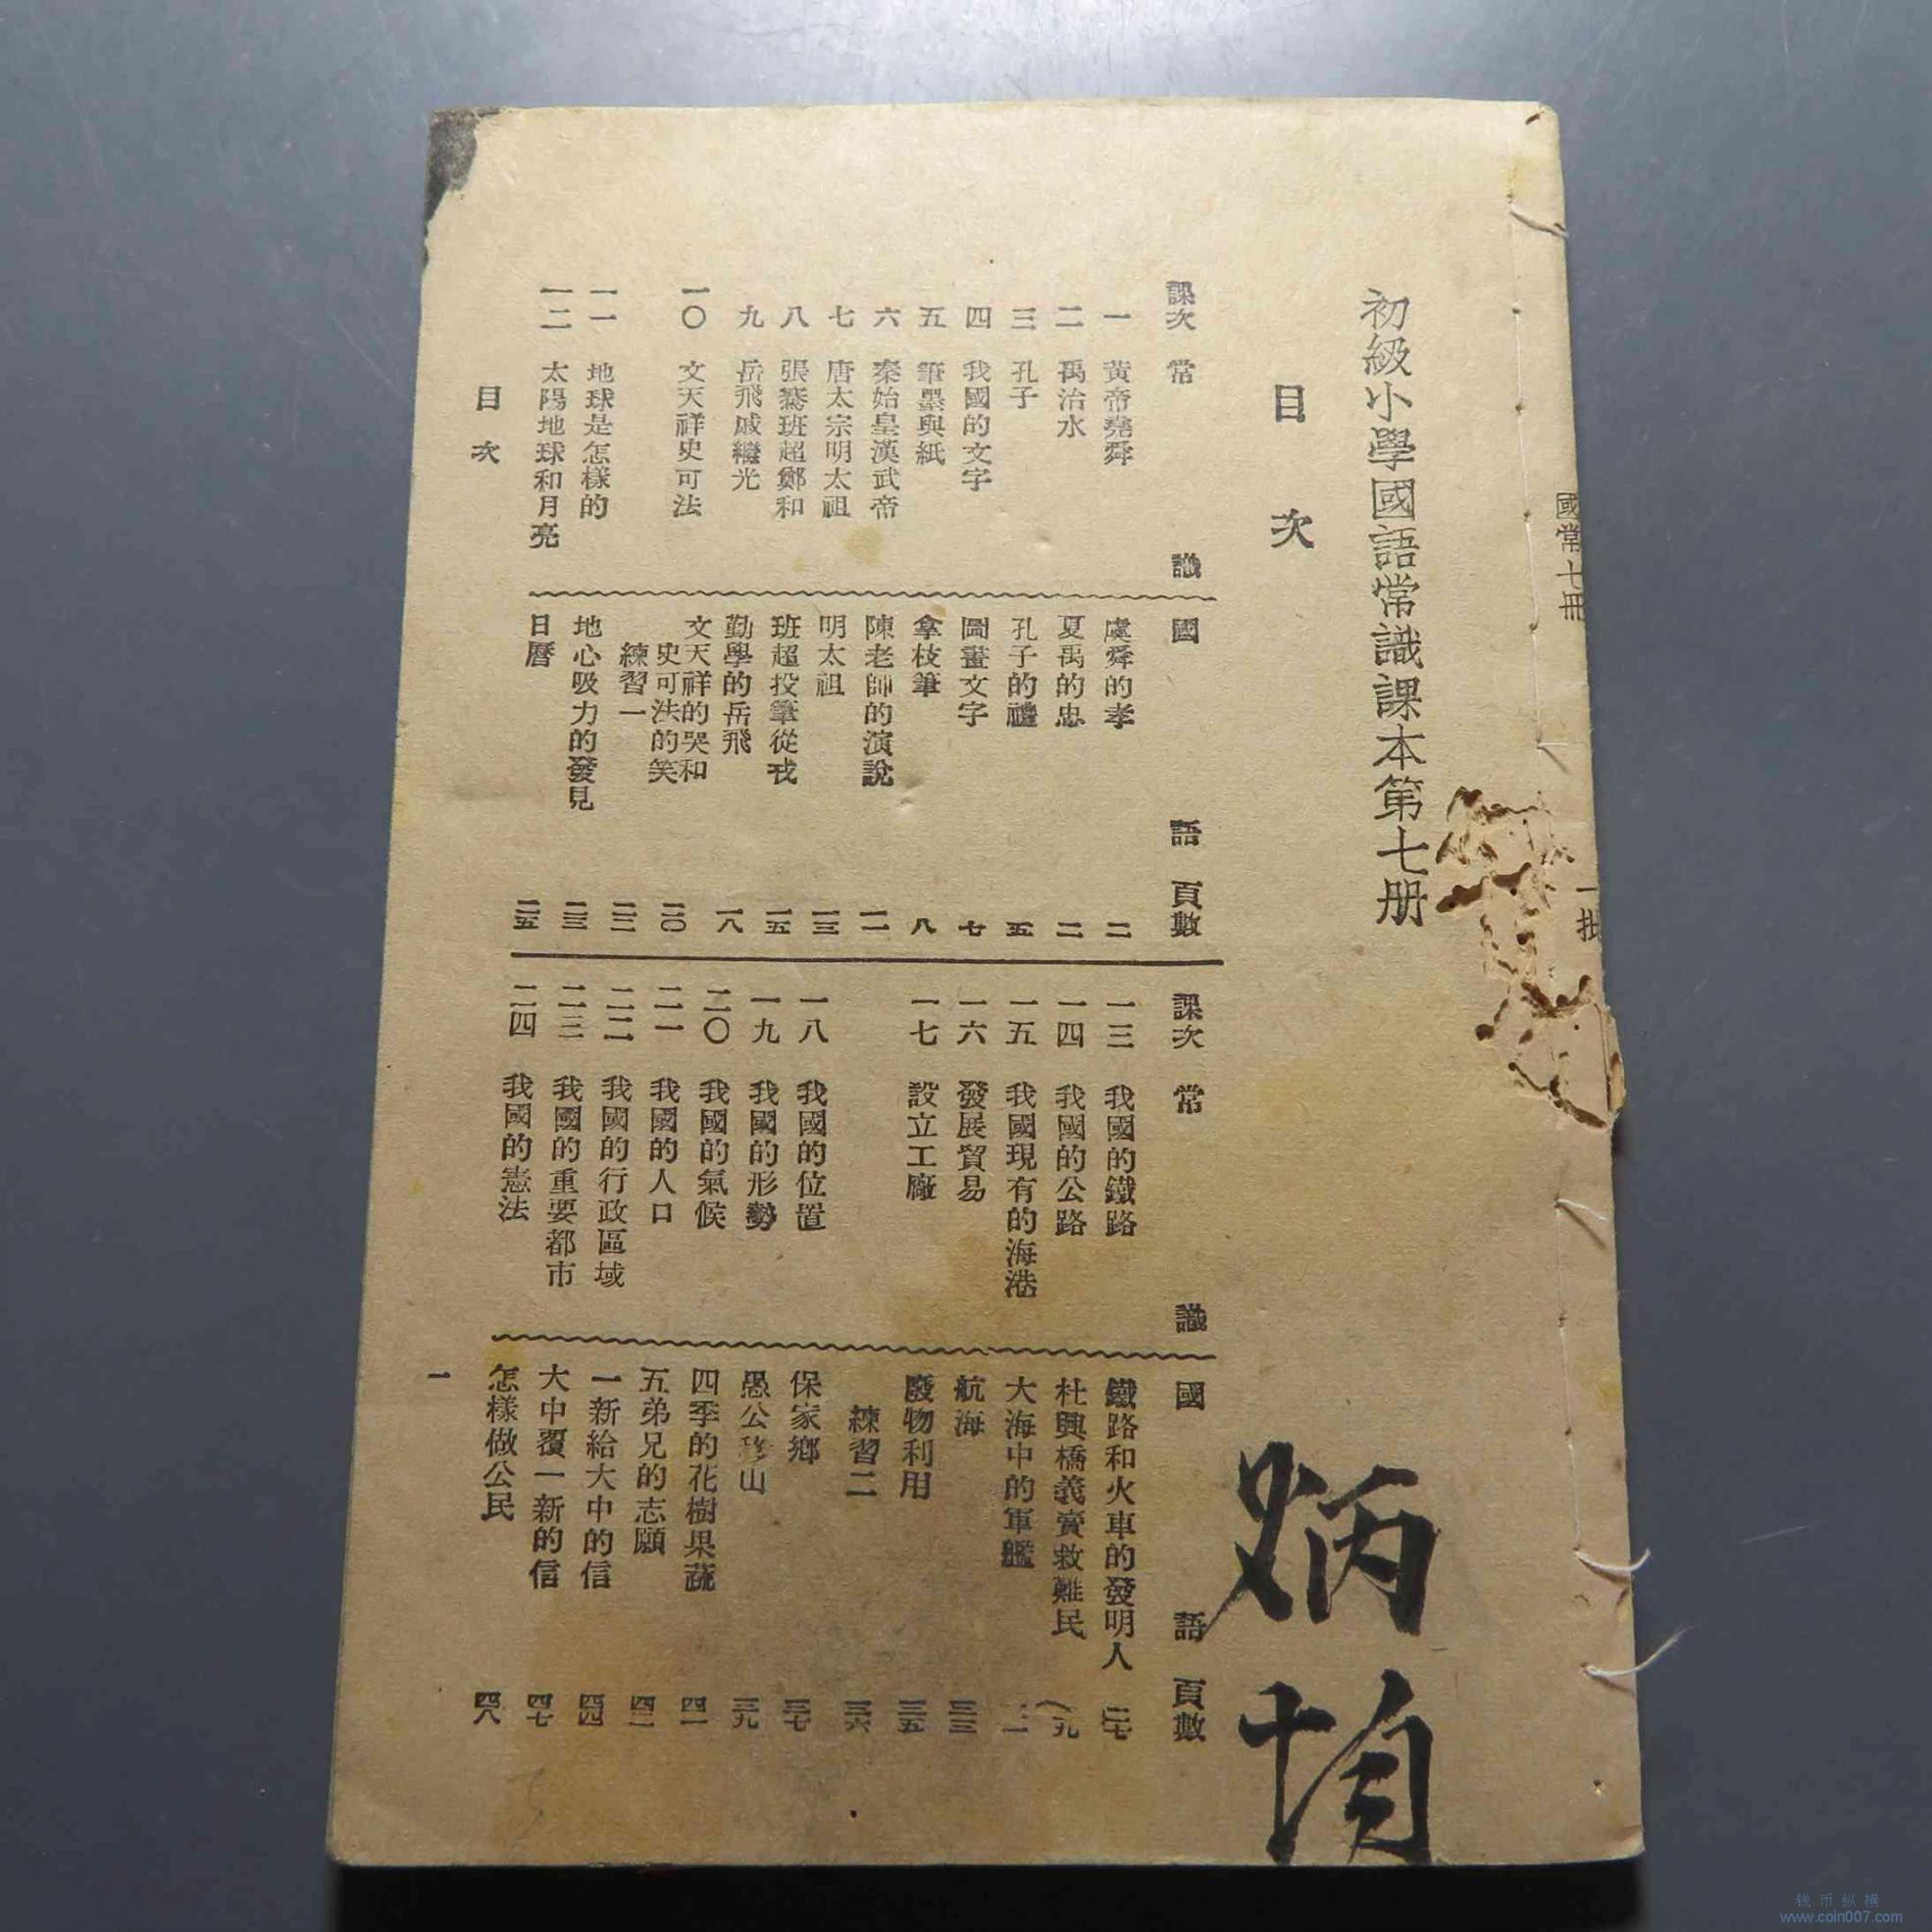 國常七冊
一批
初級小學國語常識課本第七册
目次
課次 常識 國語 頁數
一 黃帝堯舜 虞舜的孝 二
二 禹治水 夏禹的忠 二
三 孔子 孔子的禮 五
四 我國的文字 圖畫文字 七
五 筆墨與紙 拿枝筆 八
六 秦始皇漢武帝 陳老師的演說 一一
七 唐太宗明太祖 明太祖 一三
八 張騫班超鄭和 班超投筆從戎 一五
九 岳飛戚繼光 勤學的岳飛 一八
一〇 文天祥史可法 文天祥的哭和史可法的笑 二〇
練習一 二二
一一 地球是怎樣的 地心吸力的發見 二三
一二 太陽地球和月亮 日曆 二五
課次 常識 國語 頁數
一三 我國的鐵路 鐵路和火車的發明人 二七
一四 我國的公路 杜興橋義賣救難民 九
一五 我國現有的海港 大海中的軍艦
一六 發展貿易 航海 三三
一七 設立工廠 廢物利用 三五
練習二 三六
一八 我國的位置 保家鄉 三七
一九 我國的形勢 愚公移山 三九
二〇 我國的氣候 四季的花樹果蔬 四一
二一 我國的人口 五弟兄的志願 四二
二二 我國的行政區域 一新給大中的信 四四
二三 我國的重要都市 大中覆一新的信 四七
二四 我國的憲法 怎樣做公民 四八
目次
一
炳
钱币纵横
www.coin007.com